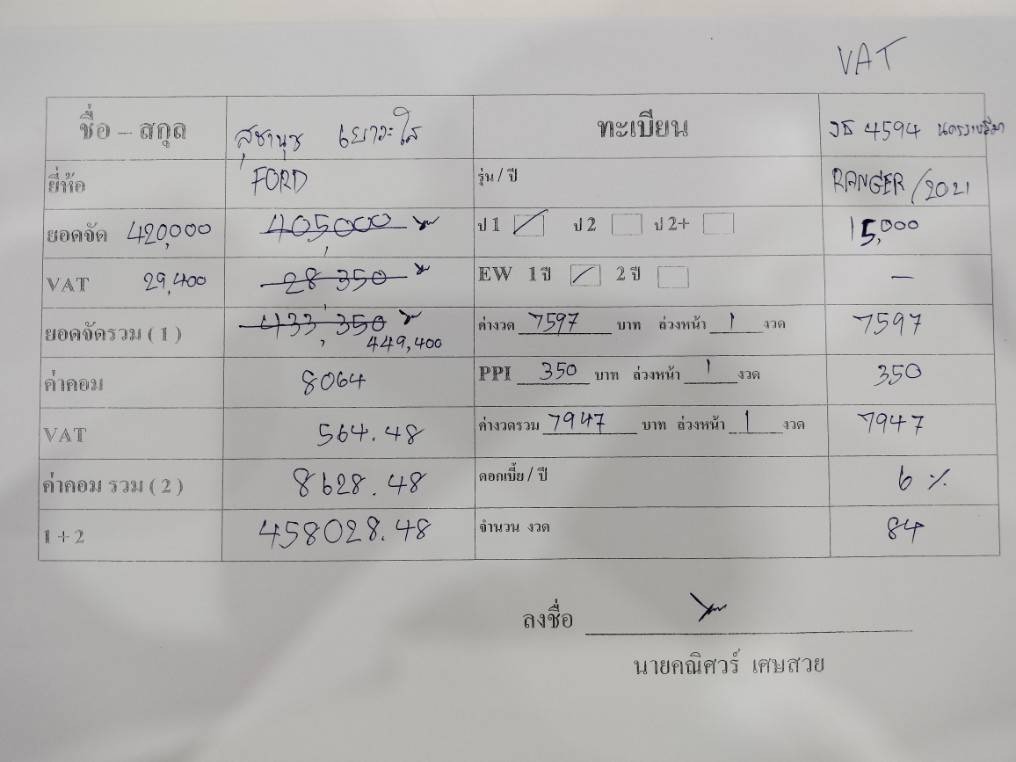 VAT
ชื่อ – สกุล สุชานุช เยาวะใส ทะเบียน 4594 นครราชสีมา
ยี่ห้อ FORD รุ่น / ปี RANGER /2021
ยอดจัด 420,000 405,000 ป 1 ป 2 ป 2+ 15,000
VAT 29,400 28,350 EW 1 ปี 2 ปี —
ยอดจัดรวม ( 1 ) 433,350 ค่างวด 7597 บาท ล่วงหน้า 1 งวด 7597
449,400
ค่าคอม 8064 PPI 350 บาท ล่วงหน้า 1 งวด 350
VAT 564.48 ค่างวดรวม 7947 บาท ล่วงหน้า 1 งวด 7947
ค่าคอม รวม ( 2 ) 8628.48 ดอกเบี้ย / ปี 6 %
1 + 2 458028.48 จำนวน งวด 84
ลงชื่อ
นายคณิศวร์ เศษสวย